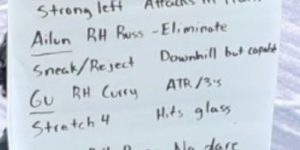 Strong left Attacks in
Ailun RH Russ - Eliminate
Sneak/Reject Downhill but capable
Gu RH Curry ATR/3's
Stretch 4 Hits glass
No dare